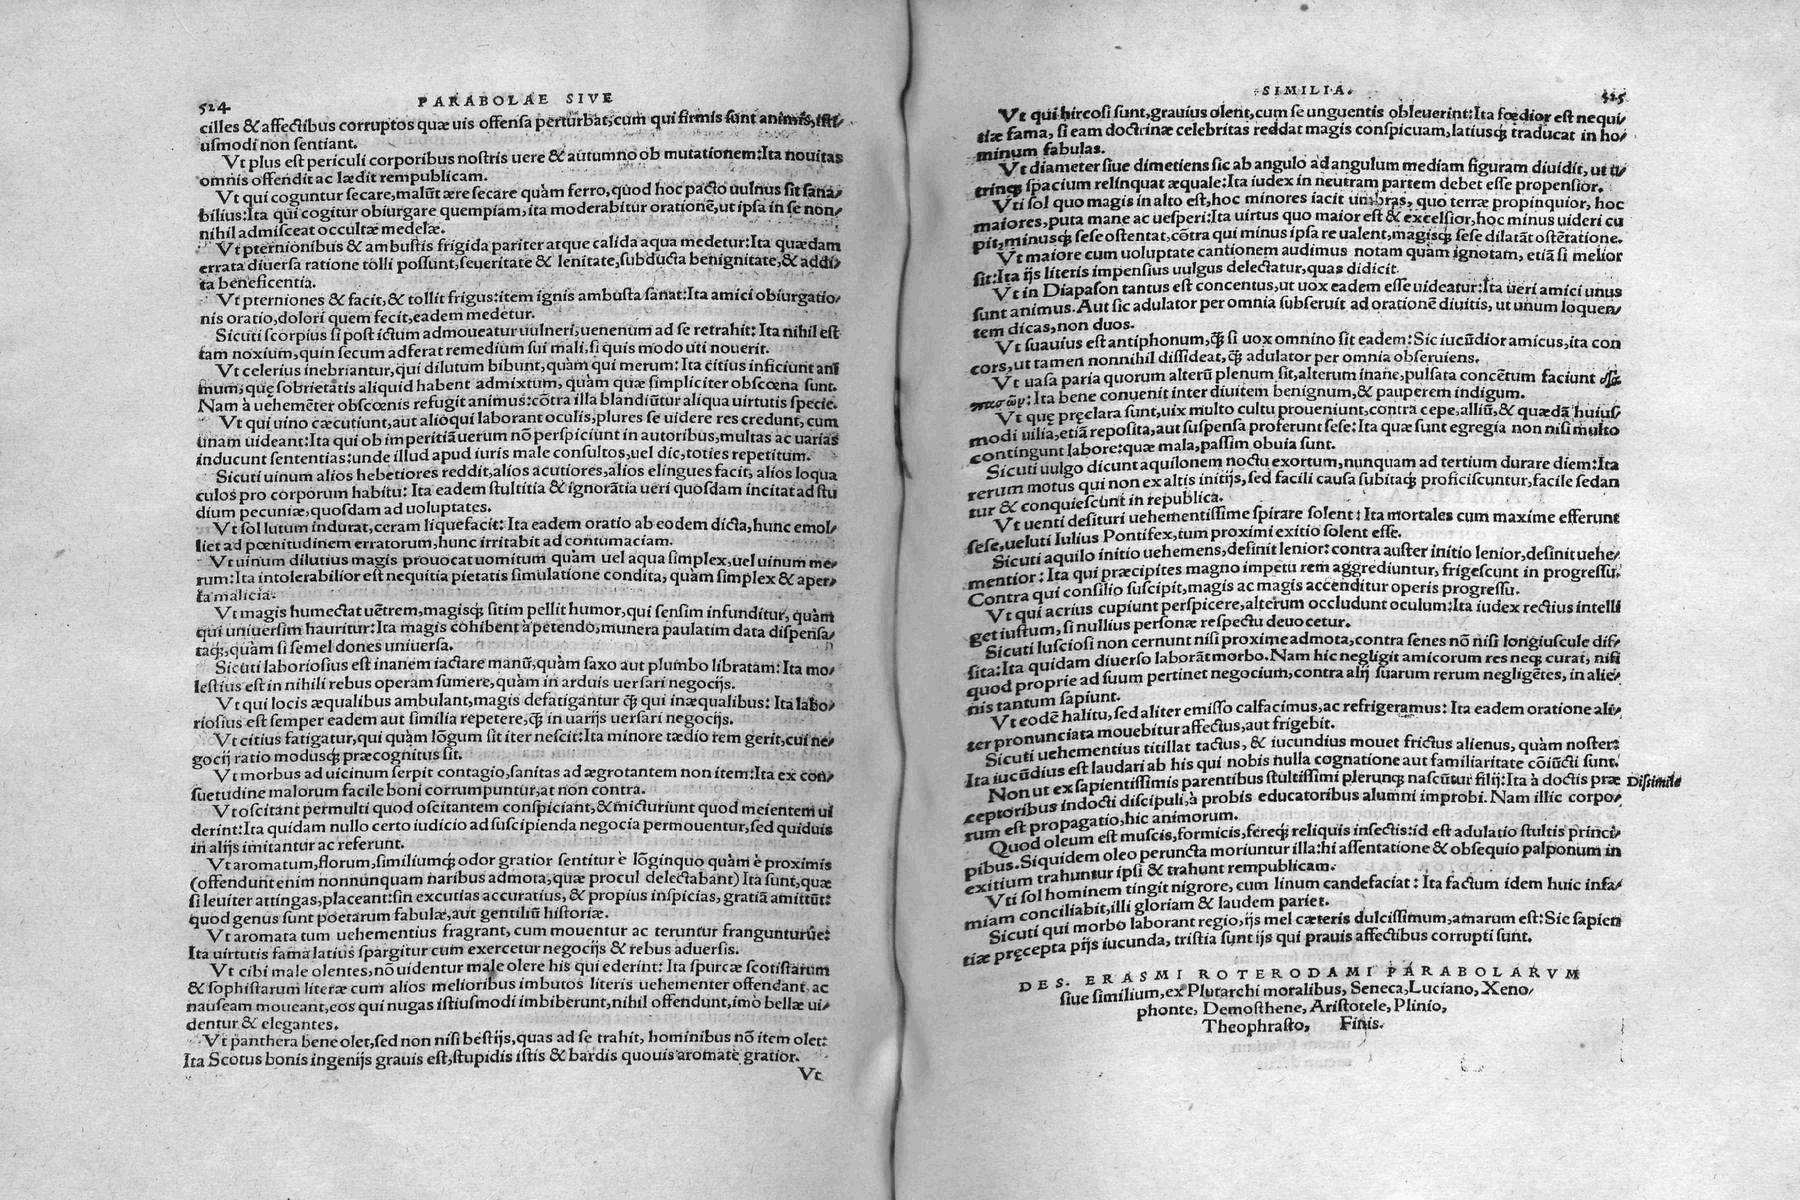 524 PARABOLAE SIVE
cilles & affectibus corruptos quæ uis offensa perturbat, cum qui firmis sunt animis, isti/
usmodi non sentiant.
Vt plus est periculi corporibus nostris uere & autumno ob mutationem: Ita nouitas
omnis offendit ac lædit rempublicam.
Vt qui coguntur secare, malũt ære secare quàm ferro, quod hoc pacto uulnus sit sana/
bilius: Ita qui cogitur obiurgare quempiam, ita moderabitur orationẽ, ut ipsa in se non/
nihil admisceat occultæ medelæ.
Vt pternionibus & ambustis frigida pariter atque calida aqua medetur: Ita quædam
errata diuersa ratione tolli possunt, seueritate & lenitate, subducta benignitate, & addi/
ta beneficentia.
Vt pterniones & facit, & tollit frigus: item ignis ambusta sanat: Ita amici obiurgatio/
nis oratio, dolori quem fecit, eadem medetur.
Sicuti scorpius si post ictum admoueatur uulneri, uenenum ad se retrahit: Ita nihil est
tam noxium, quin secum adferat remedium sui mali, si quis modo uti nouerit.
Vt celerius inebriantur, qui dilutum bibunt, quàm qui merum: Ita citius inficiunt ani
mum, quę sobrietatis aliquid habent admixtum, quàm quæ simpliciter obscœna sunt.
Nam à uehemẽter obscœnis refugit animus: cõtra illa blandiũtur aliqua uirtutis specie.
Vt qui uino cæcutiunt, aut alioqui laborant oculis, plures se uidere res credunt, cum
unam uideant: Ita qui ob imperitiã uerum nõ perspiciunt in autoribus, multas ac uarias
inducunt sententias: unde illud apud iuris male consultos, uel dic, toties repetitum.
Sicuti uinum alios hebetiores reddit, alios acutiores, alios elingues facit, alios loqua
culos pro corporum habitu: Ita eadem stultitia & ignorãtia ueri quosdam incitat ad stu
dium pecuniæ, quosdam ad uoluptates.
Vt sol lutum indurat, ceram liquefacit: Ita eadem oratio ab eodem dicta, hunc emol/
liet ad pœnitudinem erratorum, hunc irritabit ad contumaciam.
Vt uinum dilutius magis prouocat uomitum quàm uel aqua simplex, uel uinum me/
rum: Ita intolerabilior est nequitia pietatis simulatione condita, quàm simplex & aper/
ta malicia.
Vt magis humectat uẽtrem, magisq; sitim pellit humor, qui sensim infunditur, quàm
qui uniuersim hauritur: Ita magis cohibent à petendo, munera paulatim data dispensa/
taq;, quàm si semel dones uniuersa.
Sicuti laboriosius est inanem iactare manũ, quàm saxo aut plumbo libratam: Ita mo/
lestius est in nihili rebus operam sumere, quàm in arduis uersari negocijs.
Vt qui locis æqualibus ambulant, magis defatigantur q̃ qui inæqualibus: Ita labo/
riosius est semper eadem aut similia repetere, q̃ in uarijs uersari negocijs.
Vt citius fatigatur, qui quàm lõgum sit iter nescit: Ita minore tædio rem gerit, cui ne/
gocij ratio modusq; præcognitus sit.
Vt morbus ad uicinum serpit contagio, sanitas ad ægrotantem non item: Ita ex con/
suetudine malorum facile boni corrumpuntur, at non contra.
Vt oscitant permulti quod oscitantem conspiciant, & micturiunt quod meientem ui
derint: Ita quidam nullo certo iudicio ad suscipienda negocia permouentur, sed quiduis
in alijs imitantur ac referunt.
Vt aromatum, florum, similiumq; odor gratior sentitur è lõginquo quàm è proximis
(offendunt enim nonnunquam naribus admota, quæ procul delectabant) Ita sunt, quæ
si leuiter attingas, placeant: sin excutias accuratius, & propius inspicias, gratiã amittũt:
quod genus sunt poetarum fabulæ, aut gentiliũ historiæ.
Vt aromata tum uehementius fragrant, cum mouentur ac teruntur frangunturûe:
Ita uirtutis fama latius spargitur cum exercetur negocijs & rebus aduersis.
Vt cibi male olentes, nõ uidentur male olere his qui ederint: Ita spurcæ scotistarum
& sophistarum literæ cum alios melioribus imbutos literis uehementer offendant, ac
nauseam moueant, eos qui nugas istiusmodi imbiberunt, nihil offendunt, imò bellæ ui/
dentur & elegantes.
Vt panthera bene olet, sed non nisi bestijs, quas ad se trahit, hominibus nõ item olet:
Ita Scotus bonis ingenijs grauis est, stupidis istis & bardis quouis aromate gratior.
Vt
SIMILIA. 525
Vt qui hircosi sunt, grauius olent, cum se unguentis obleuerint: Ita fœdior est nequi/
tiæ fama, si eam doctrinæ celebritas reddat magis conspicuam, latiusq; traducat in ho/
minum fabulas.
Vt diameter siue dimetiens sic ab angulo ad angulum mediam figuram diuidit, ut u/
trinq; spacium relinquat æquale: Ita iudex in neutram partem debet esse propensior.
Vti sol quo magis in alto est, hoc minores iacit umbras, quo terræ propinquior, hoc
maiores, puta mane ac uesperi: Ita uirtus quo maior est & excelsior, hoc minus uideri cu
pit, minusq; sese ostentat, cõtra qui minus ipsa re ualent, magisq; sese dilatãt ostẽtatione.
Vt maiore cum uoluptate cantionem audimus notam quàm ignotam, etiã si melior
sit: Ita ijs literis impensius uulgus delectatur, quas didicit.
Vt in Diapason tantus est concentus, ut uox eadem esse uideatur: Ita ueri amici unus
sunt animus. Aut sic adulator per omnia subseruit ad orationẽ diuitis, ut unum loquen/
tem dicas, non duos.
Vt suauius est antiphonum, q̃ si uox omnino sit eadem: Sic iucũdior amicus, ita con
cors, ut tamen nonnihil dissideat, q̃ adulator per omnia obseruiens.
Vt uasa paria quorum alterũ plenum sit, alterum inane, pulsata concẽtum faciunt διὰ
πασῶν: Ita bene conuenit inter diuitem benignum, & pauperem indigum.
Vt quę pręclara sunt, uix multo cultu proueniunt, contra cepe, alliũ, & quædã huius/
modi uilia, etiã reposita, aut suspensa proferunt sese: Ita quæ sunt egregia non nisi multo
contingunt labore: quæ mala, passim obuia sunt.
Sicuti uulgo dicunt aquilonem noctu exortum, nunquam ad tertium durare diem: Ita
rerum motus qui non ex altis initijs, sed facili causa subitaq; proficiscuntur, facile sedan
tur & conquiescũt in republica.
Vt uenti desituri uehementissime spirare solent: Ita mortales cum maxime efferunt
sese, ueluti Iulius Pontifex, tum proximi exitio solent esse.
Sicuti aquilo initio uehemens, desinit lenior: contra auster initio lenior, desinit uehe/
mentior: Ita qui præcipites magno impetu rem aggrediuntur, frigescunt in progressu.
Contra qui consilio suscipit, magis ac magis accenditur operis progressu.
Vt qui acrius cupiunt perspicere, alterum occludunt oculum: Ita iudex rectius intelli
get iustum, si nullius personæ respectu deuocetur.
Sicuti lusciosi non cernunt nisi proxime admota, contra senes nõ nisi longiuscule dis/
sita: Ita quidam diuerso laborãt morbo. Nam hic negligit amicorum res neq; curat, nisi
quod proprie ad suum pertinet negocium, contra alij suarum rerum negligẽtes, in alie/
nis tantum sapiunt.
Vt eodẽ halitu, sed aliter emisso calfacimus, ac refrigeramus: Ita eadem oratione ali/
ter pronunciata mouebitur affectus, aut frigebit.
Sicuti uehementius titillat tactus, & iucundius mouet frictus alienus, quàm noster:
Ita iucũdius est laudari ab his qui nobis nulla cognatione aut familiaritate cõiũcti sunt.
Non ut ex sapientissimis parentibus stultissimi plerunq; nascũtur filij: Ita à doctis præ Dissimile
ceptoribus indocti discipuli, à probis educatoribus alumni improbi. Nam illic corpo/
rum est propagatio, hic animorum.
Quod oleum est muscis, formicis, fereq; reliquis insectis: id est adulatio stultis princi/
pibus. Siquidem oleo peruncta moriuntur illa: hi assentatione & obsequio palponum in
exitium trahuntur ipsi & trahunt rempublicam.
Vti sol hominem tingit nigrore, cum linum candefaciat: Ita factum idem huic infa/
miam conciliabit, illi gloriam & laudem pariet.
Sicuti qui morbo laborant regio, ijs mel cæteris dulcissimum, amarum est: Sic sapien
tiæ pręcepta pijs iucunda, tristia sunt ijs qui prauis affectibus corrupti sunt.
DES. ERASMI ROTERODAMI PARABOLARVM
siue similium, ex Plutarchi moralibus, Seneca, Luciano, Xeno/
phonte, Demosthene, Aristotele, Plinio,
Theophrasto, Finis.